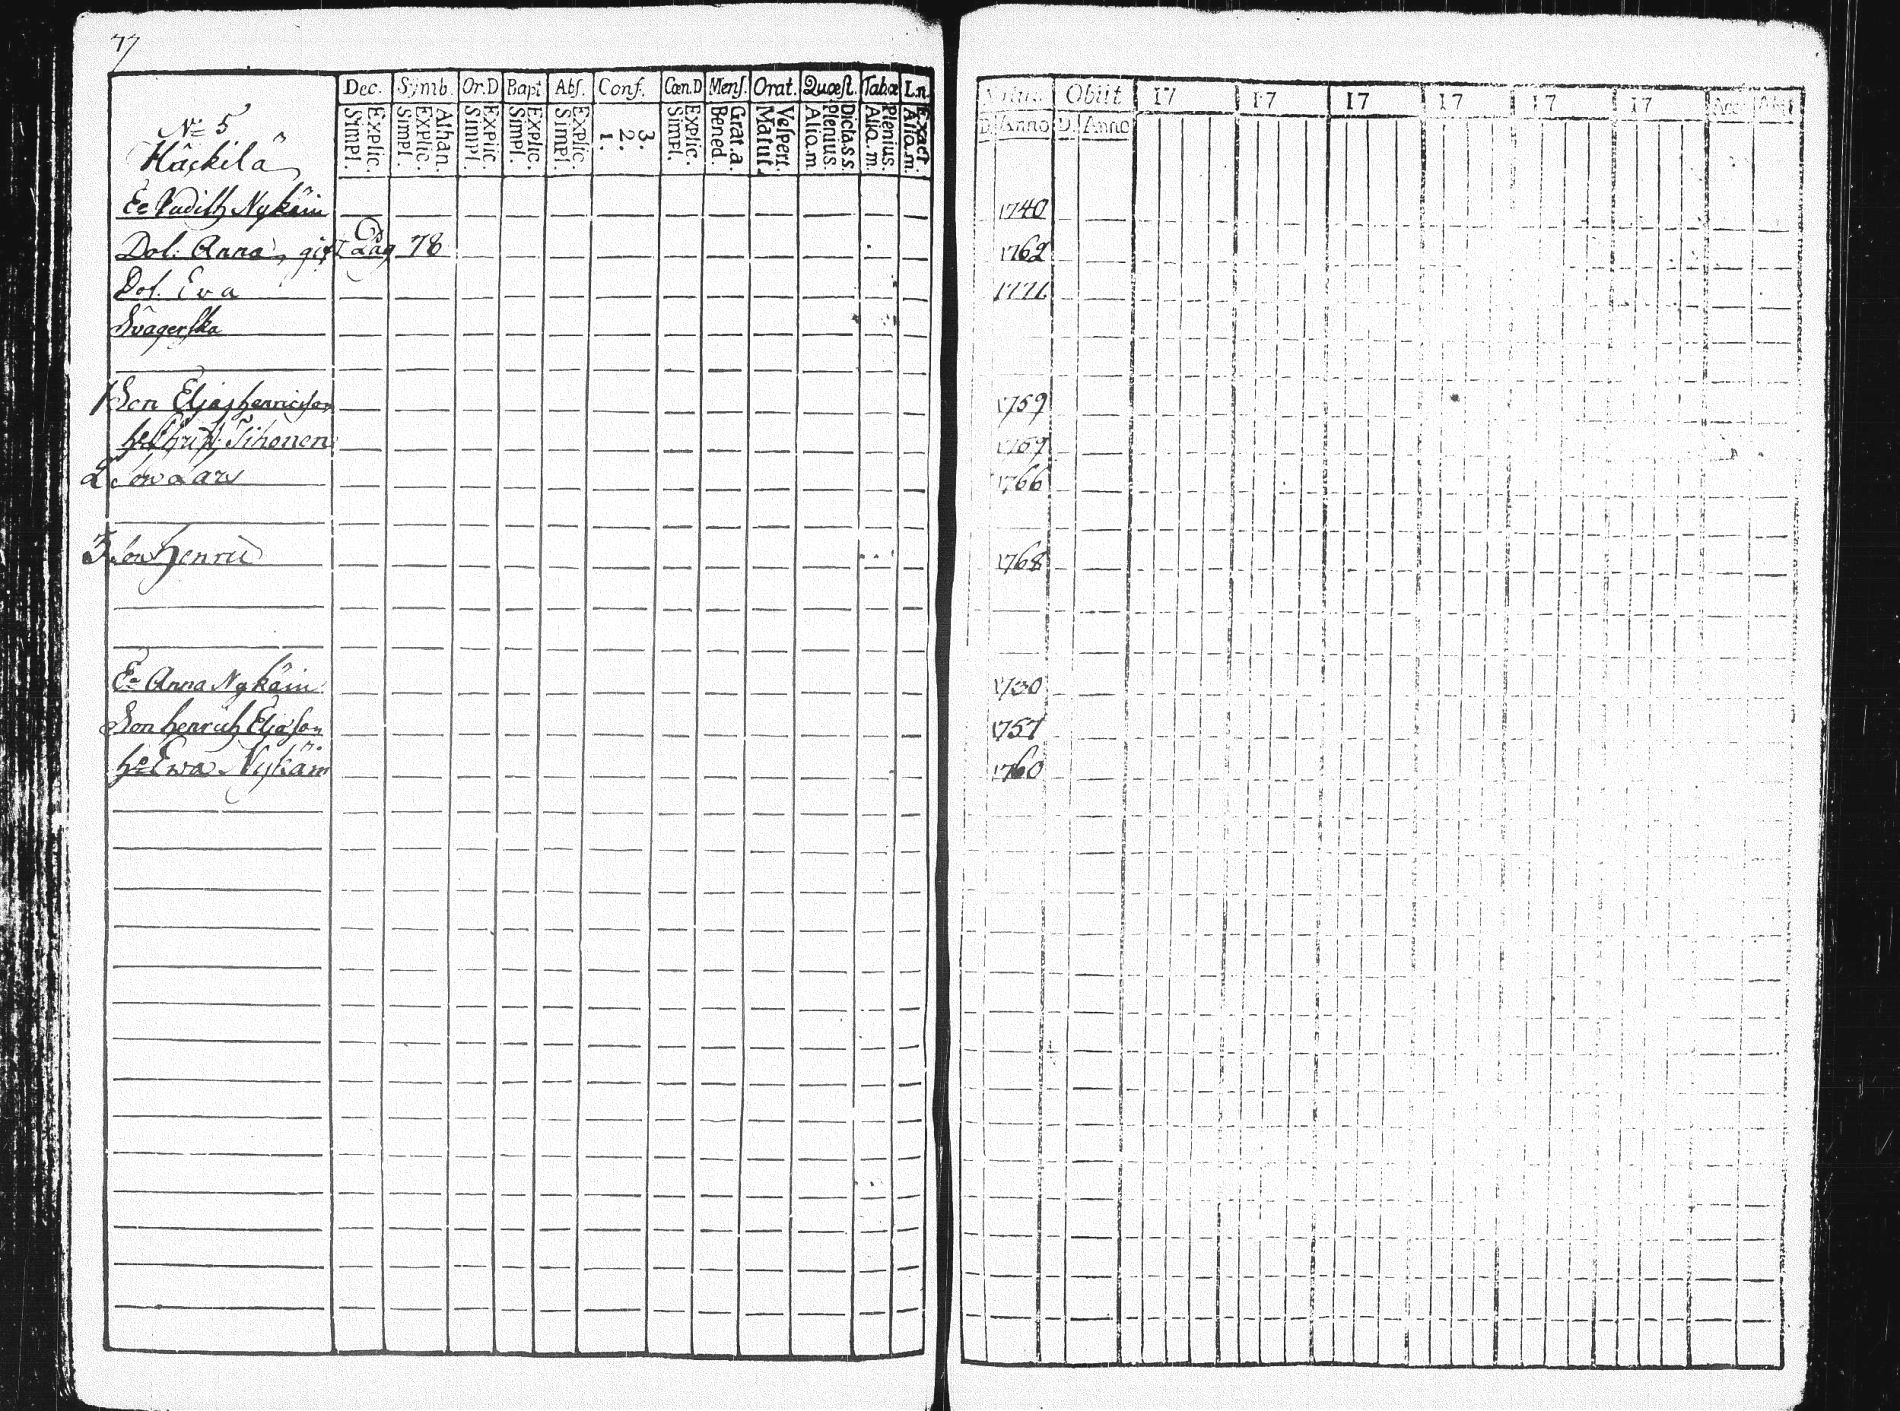 77
Dec. Symb. Or.D Bapt. Abs. Conf. Cœn.D Mens. Orat. Quæst. Tabæ I.n.
Explic. Simpl. Athan. Explic. Simpl. Explic. Simpl. Explic. Simpl. Explic. Simpl. 3. 2. 1. Explic. Simpl. Grat.a. Bened. Vespert. Matut. Dicta.s.s. Plenius. Alio.m Plenius. Alio.m. Exact Alio.m.
Obiit 17 17 17 17 17 17
D. Anno D. Anno
No 5
Häckilä
Ea Judith Nykäin 1740
Dot: Anna, gift 78 1762
Dot. Eva 1771
Svägerska
1 Son Elias henricson 1759
Tihonen 1759
2 Son Lars 1766
3 Son Henric 1768
Ea Anna Nykäin 1730
Son henrich Eliason 1757
ho Ewa Nykäin 1760